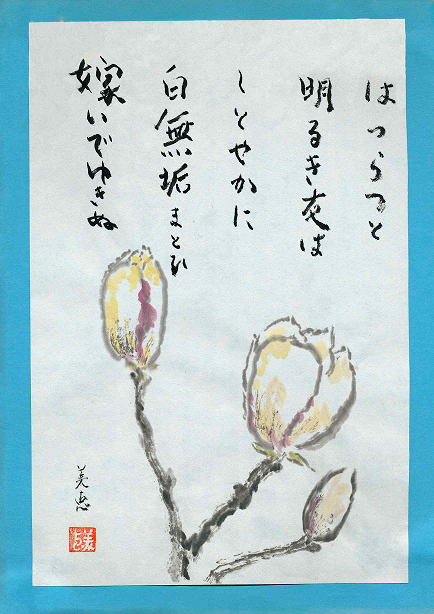 はつらつと
明るき友は
しとやかに
白無垢まとひ
嫁いでゆきぬ
美恵